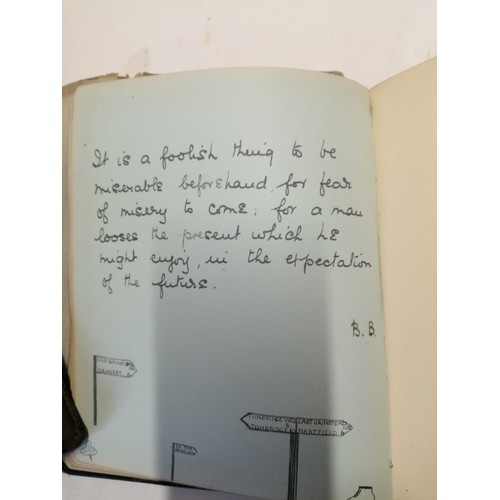 It is a foolish thing to be
miserable beforehand, for fear
of misery to come; for a man
looses the present which he
might enjoy, in the expectation
of the future.
B. B.
TUNBRIDGE WELLS EAST GRINSTEAD
&
TONBRIDGE HARTFIELD